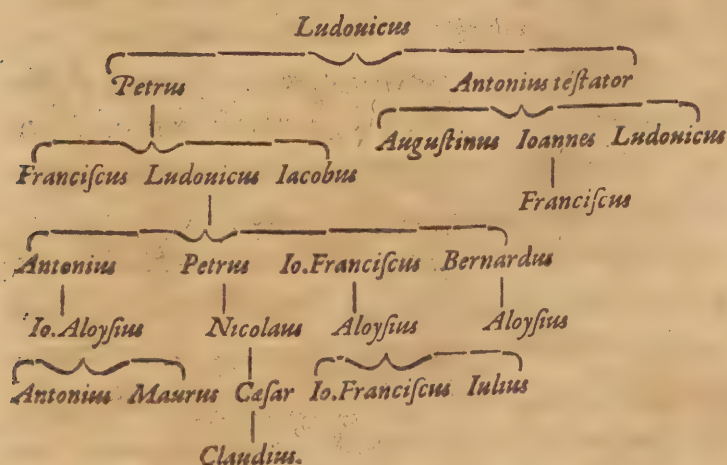 Ludouicus
Petrus Antonius teſtator
Auguſtinus Ioannes Ludouicus
Franciſcus Ludouicus Iacobus
Franciſcus
Antonius Petrus Io.Franciſcus Bernardus
Io.Aloyſius Nicolaus Aloyſius Aloyſius
Antonius Maurus Cæſar Io.Franciſcus Iulius
Claudius.